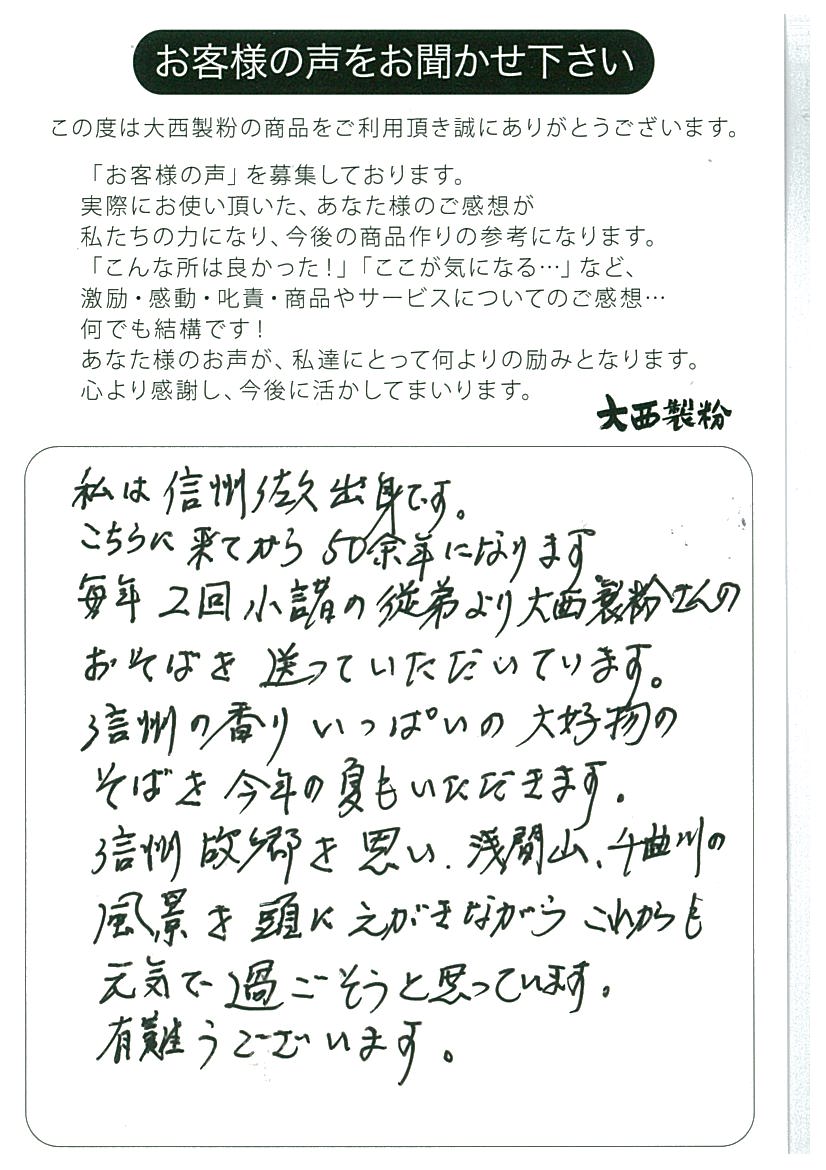 お客様の声をお聞かせ下さい
この度は大西製粉の商品をご利用頂き誠にありがとうございます。
「お客様の声」を募集しております。
実際にお使い頂いた、あなた様のご感想が
私たちの力になり、今後の商品作りの参考になります。
「こんな所は良かった！」「ここが気になる…」など、
激励・感動・叱責・商品やサービスについてのご感想…
何でも結構です！
あなた様のお声が、私達にとって何よりの励みとなります。
心より感謝し、今後に活かしてまいります。
大西製粉
私は信州佐久出身です。
こちらに来てから50余年になります
毎年2回小諸の従弟より大西製粉さんの
おそばを送っていただいています。
信州の香りいっぱいの大好物の
そばを今年の夏もいただきます。
信州故郷を思い、浅間山、千曲川の
風景を頭にえがきながらこれからも
元気で過ごそうと思っています。
有難うございます。